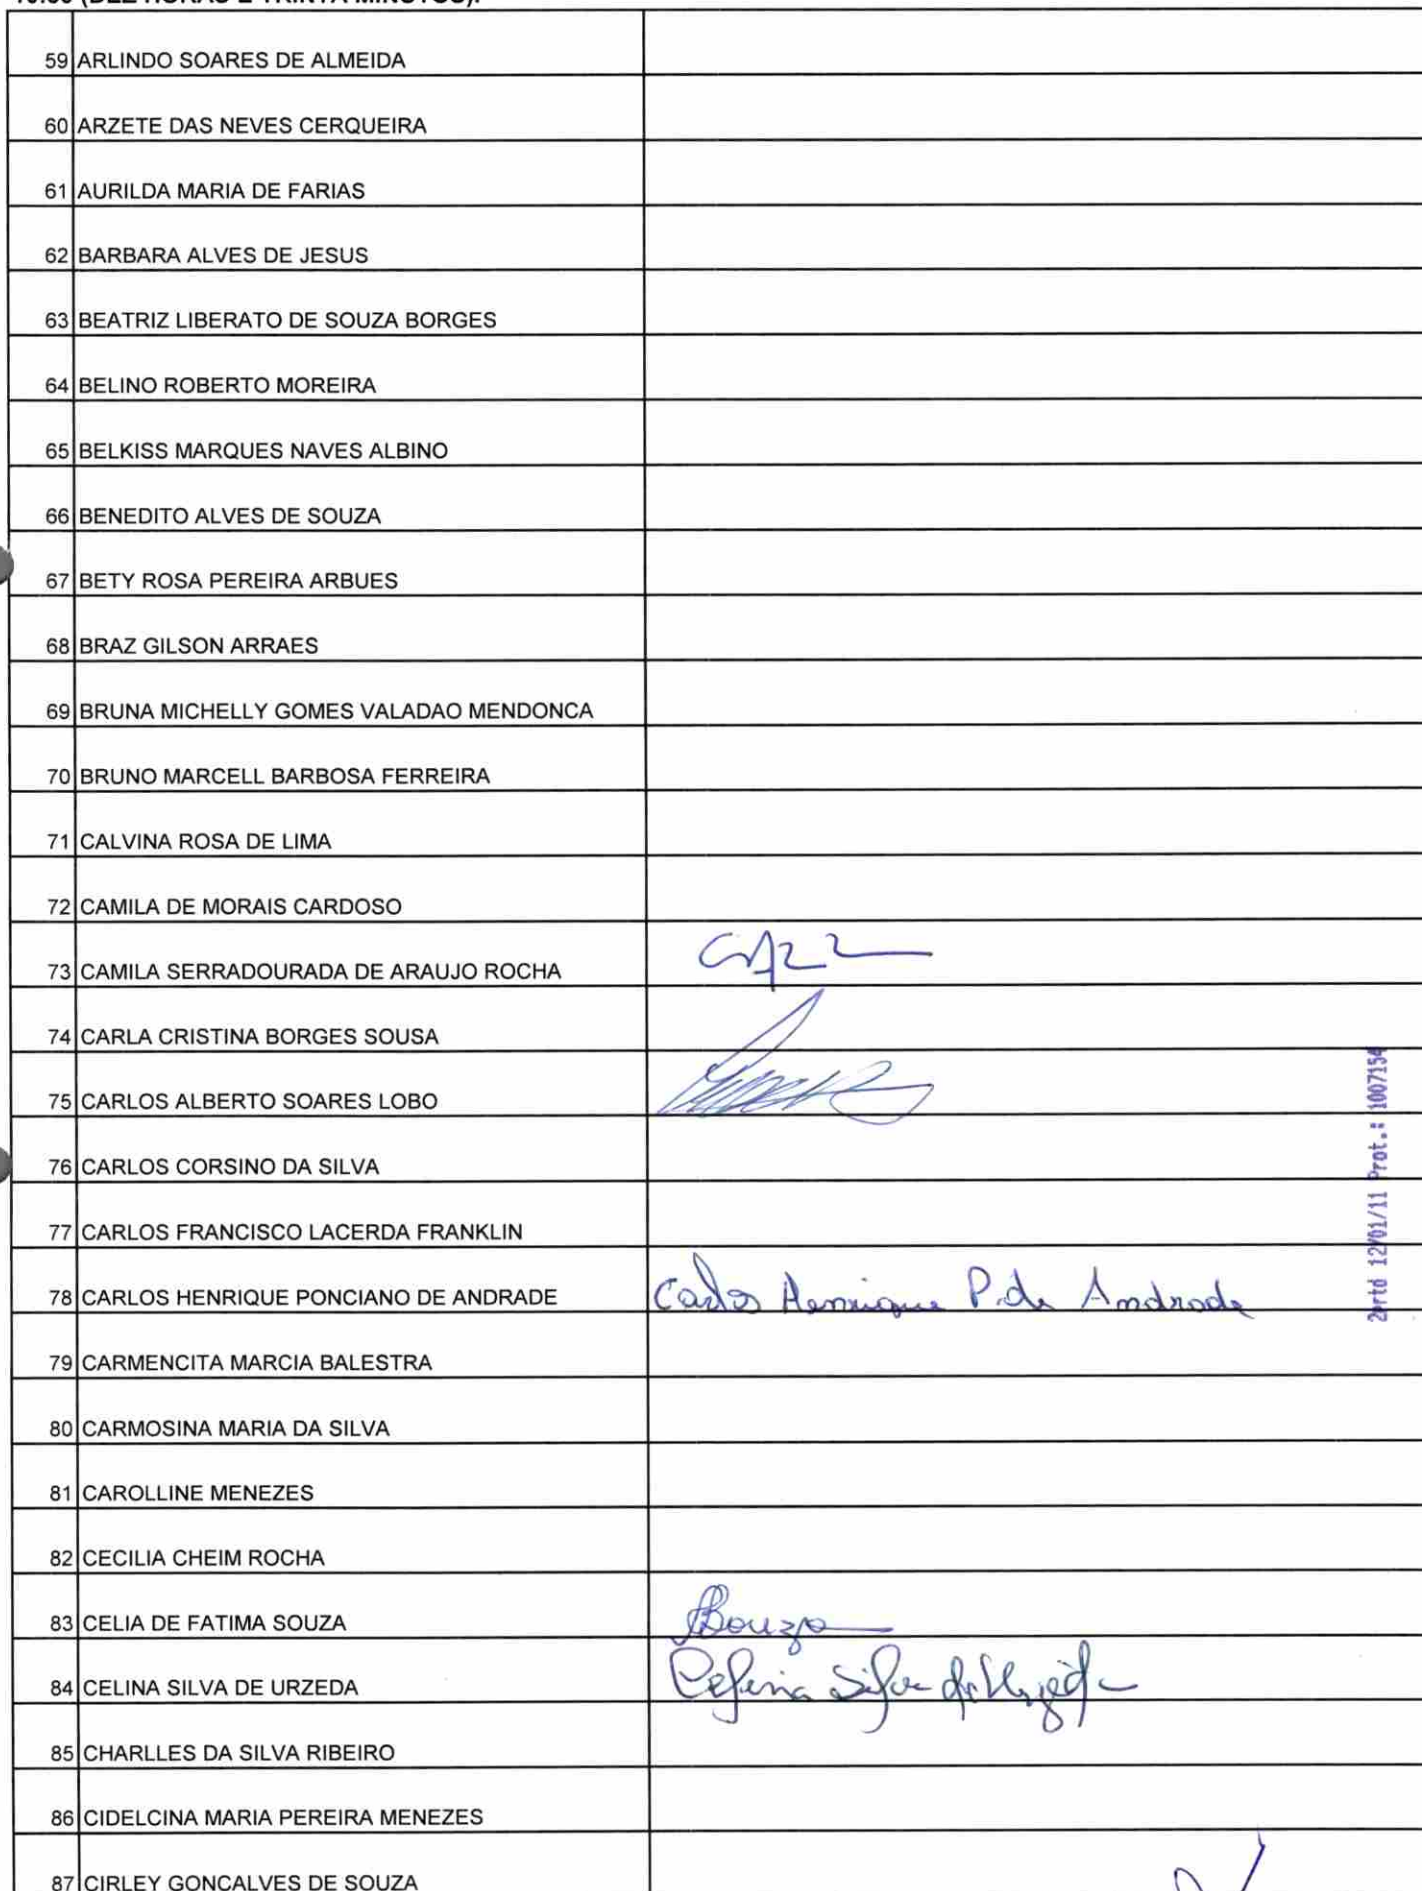 10:30 (DEZ HORAS E TRINTA MINUTOS).
59 ARLINDO SOARES DE ALMEIDA
60 ARZETE DAS NEVES CERQUEIRA
61 AURILDA MARIA DE FARIAS
62 BARBARA ALVES DE JESUS
63 BEATRIZ LIBERATO DE SOUZA BORGES
64 BELINO ROBERTO MOREIRA
65 BELKISS MARQUES NAVES ALBINO
66 BENEDITO ALVES DE SOUZA
67 BETY ROSA PEREIRA ARBUES
68 BRAZ GILSON ARRAES
69 BRUNA MICHELLY GOMES VALADAO MENDONCA
70 BRUNO MARCELL BARBOSA FERREIRA
71 CALVINA ROSA DE LIMA
72 CAMILA DE MORAIS CARDOSO
73 CAMILA SERRADOURADA DE ARAUJO ROCHA
74 CARLA CRISTINA BORGES SOUSA
75 CARLOS ALBERTO SOARES LOBO
76 CARLOS CORSINO DA SILVA
77 CARLOS FRANCISCO LACERDA FRANKLIN
78 CARLOS HENRIQUE PONCIANO DE ANDRADE Carlos Henrique P. de Andrade
79 CARMENCITA MARCIA BALESTRA
80 CARMOSINA MARIA DA SILVA
81 CAROLLINE MENEZES
82 CECILIA CHEIM ROCHA
83 CELIA DE FATIMA SOUZA
84 CELINA SILVA DE URZEDA Celina Silva de Urzêda
85 CHARLLES DA SILVA RIBEIRO
86 CIDELCINA MARIA PEREIRA MENEZES
87 CIRLEY GONCALVES DE SOUZA
2ºrtd 12/01/11 Prot.: 1007154